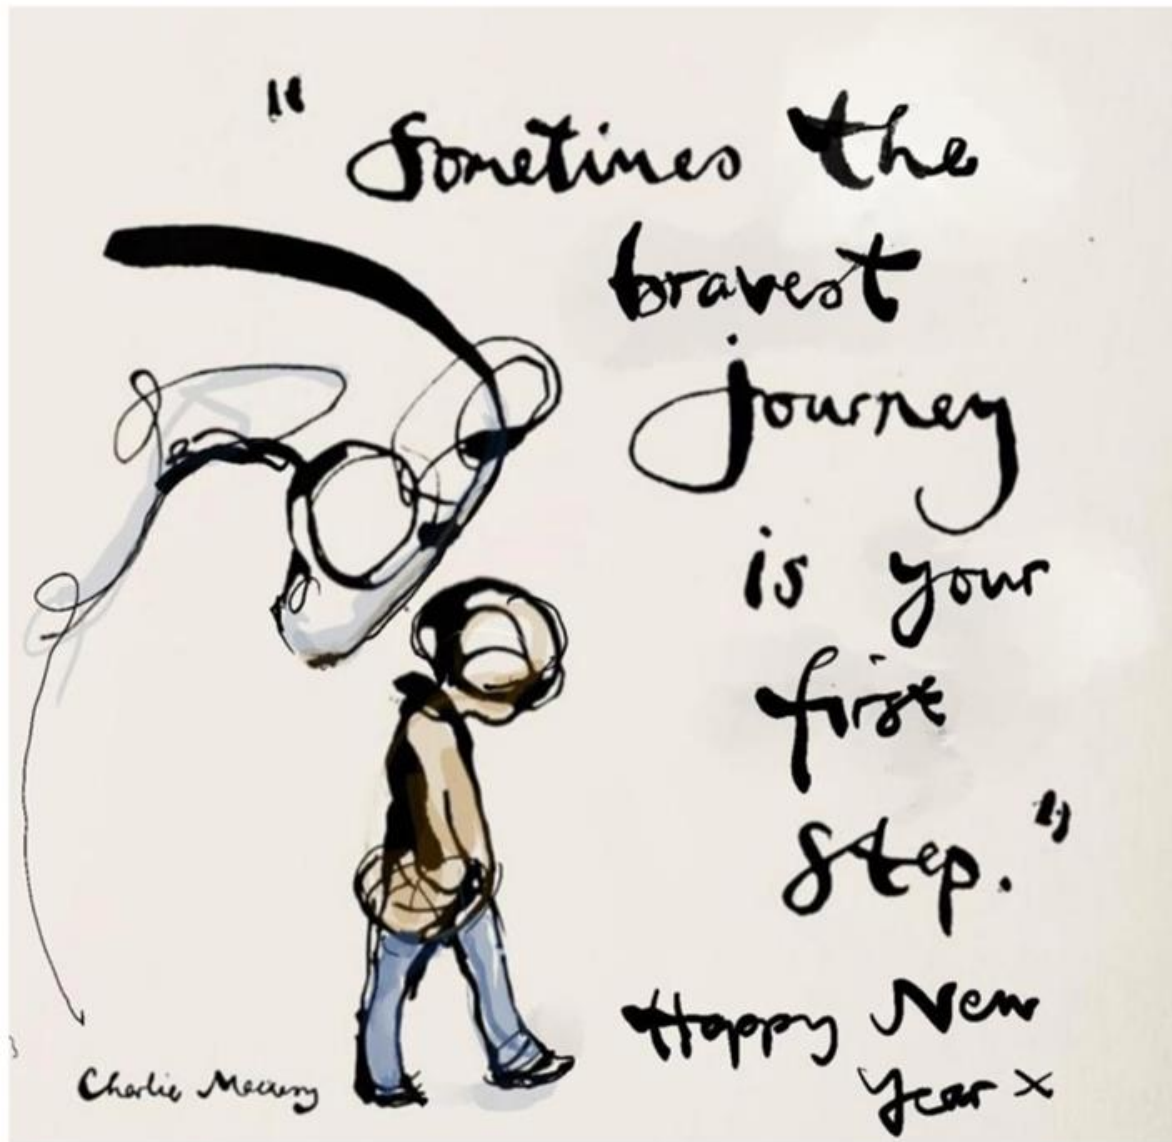 "Sometimes the
bravest
journey
is your
first
step."
Happy New
Year x
Charlie Macesy